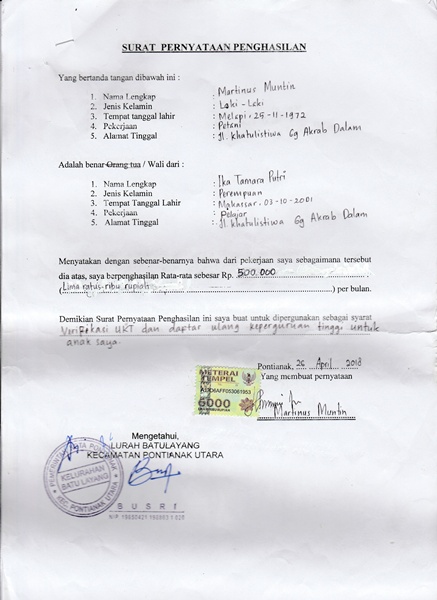 SURAT PERNYATAAN PENGHASILAN
Yang bertanda tangan dibawah ini :
1. Nama Lengkap : Martinus Muntin
2. Jenis Kelamin : Laki-Leki
3. Tempat tanggal lahir : Melepi, 25-11-1972
4. Pekerjaan : Petani
5. Alamat Tinggal : Jl. Khatulistiwa Gg Akrab Dalam
Adalah benar Orang tua / Wali dari :
1. Nama Lengkap : Ika Tamara Putri
2. Jenis Kelamin : Perempuan
3. Tempat Tanggal Lahir : Makassar, 03-10-2001
4. Pekerjaan : Pelajar
5. Alamat Tinggal : Jl. Khatulistiwa Gg Akrab Dalam
Menyatakan dengan sebenar-benarnya bahwa dari pekerjaan saya sebagaimana tersebut
dia atas, saya berpenghasilan Rata-rata sebesar Rp. 500.000
(Lima ratus ribu rupiah) per bulan.
Demikian Surat Pernyataan Penghasilan ini saya buat untuk dipergunakan sebagai syarat
Verifikasi UKT dan daftar ulang keperguruan tinggi untuk
anak saya.
Pontianak, 26 April 2018
Yang membuat pernyataan
METERAI
TEMPEL
6000
Martinus Muntin
Mengetahui,
LURAH BATULAYANG
KECAMATAN PONTIANAK UTARA
PEMERINTAH KOTA PONTIANAK
KELURAHAN
BATU LAYANG
KEC. PONTIANAK UTARA
BUSRI